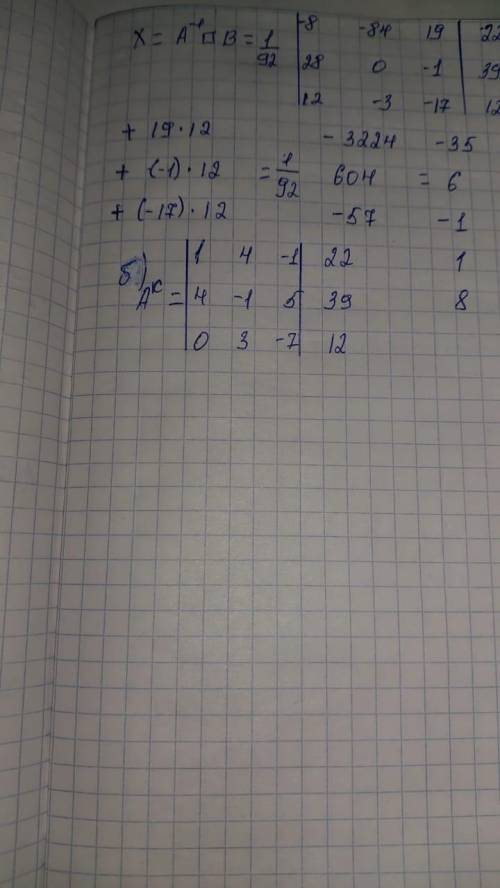 X = A⁻¹ □ B = 1/92 | -8 -84 19 | 22
28 0 -1 | 39
12 -3 -17 | 12
+ 19·12 -3224 -35
+ (-1)·12 = 1/92 604 = 6
+ (-17)·12 -57 -1
б) Aᴷ = | 1 4 -1 | 22 1
4 -1 5 | 39 8
0 3 -7 | 12